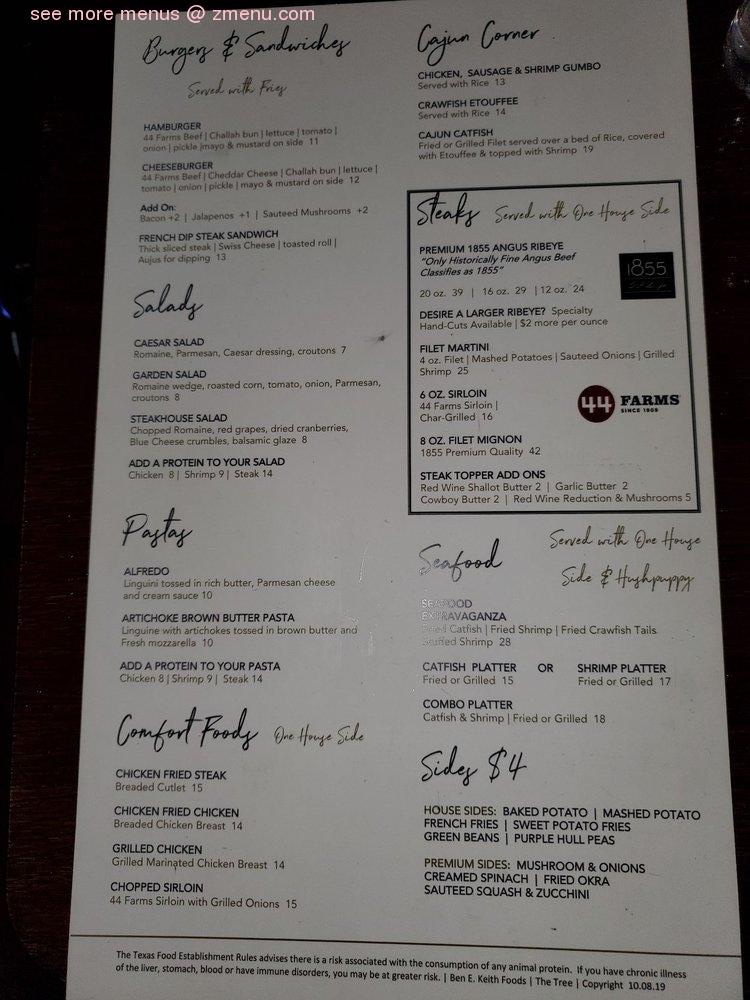 see more menus @ zmenu.com
Burgers & Sandwiches
Served with Fries
HAMBURGER
44 Farms Beef | Challah bun | lettuce | tomato |
onion | pickle |mayo & mustard on side 11
CHEESEBURGER
44 Farms Beef | Cheddar Cheese | Challah bun | lettuce |
tomato | onion | pickle | mayo & mustard on side 12
Add On:
Bacon +2 | Jalapenos +1 | Sauteed Mushrooms +2
FRENCH DIP STEAK SANDWICH
Thick sliced steak | Swiss Cheese | toasted roll |
Aujus for dipping 13
Salads
CAESAR SALAD
Romaine, Parmesan, Caesar dressing, croutons 7
GARDEN SALAD
Romaine wedge, roasted corn, tomato, onion, Parmesan,
croutons 8
STEAKHOUSE SALAD
Chopped Romaine, red grapes, dried cranberries,
Blue Cheese crumbles, balsamic glaze 8
ADD A PROTEIN TO YOUR SALAD
Chicken 8 | Shrimp 9 | Steak 14
Pastas
ALFREDO
Linguini tossed in rich butter, Parmesan cheese
and cream sauce 10
ARTICHOKE BROWN BUTTER PASTA
Linguine with artichokes tossed in brown butter and
Fresh mozzarella 10
ADD A PROTEIN TO YOUR PASTA
Chicken 8 | Shrimp 9 | Steak 14
Comfort Foods One House Side
CHICKEN FRIED STEAK
Breaded Cutlet 15
CHICKEN FRIED CHICKEN
Breaded Chicken Breast 14
GRILLED CHICKEN
Grilled Marinated Chicken Breast 14
CHOPPED SIRLOIN
44 Farms Sirloin with Grilled Onions 15
Cajun Corner
CHICKEN, SAUSAGE & SHRIMP GUMBO
Served with Rice 13
CRAWFISH ETOUFFEE
Served with Rice 14
CAJUN CATFISH
Fried or Grilled Filet served over a bed of Rice, covered
with Etouffee & topped with Shrimp 19
Steaks Served with One House Side
PREMIUM 1855 ANGUS RIBEYE
"Only Historically Fine Angus Beef
Classifies as 1855"
1855
20 oz. 39 | 16 oz. 29 | 12 oz. 24
DESIRE A LARGER RIBEYE? Specialty
Hand-Cuts Available | $2 more per ounce
FILET MARTINI
4 oz. Filet | Mashed Potatoes | Sauteed Onions | Grilled
Shrimp 25
6 OZ. SIRLOIN
44 Farms Sirloin |
Char-Grilled 16
44 FARMS
SINCE 1909
8 OZ. FILET MIGNON
1855 Premium Quality 42
STEAK TOPPER ADD ONS
Red Wine Shallot Butter 2 | Garlic Butter 2
Cowboy Butter 2 | Red Wine Reduction & Mushrooms 5
Seafood Served with One House
Side & Hushpuppy
SEAFOOD
EXTRAVAGANZA
Fried Catfish | Fried Shrimp | Fried Crawfish Tails
Stuffed Shrimp 28
CATFISH PLATTER OR SHRIMP PLATTER
Fried or Grilled 15 Fried or Grilled 17
COMBO PLATTER
Catfish & Shrimp | Fried or Grilled 18
Sides $4
HOUSE SIDES: BAKED POTATO | MASHED POTATO
FRENCH FRIES | SWEET POTATO FRIES
GREEN BEANS | PURPLE HULL PEAS
PREMIUM SIDES: MUSHROOM & ONIONS
CREAMED SPINACH | FRIED OKRA
SAUTEED SQUASH & ZUCCHINI
The Texas Food Establishment Rules advises there is a risk associated with the consumption of any animal protein. If you have chronic illness
of the liver, stomach, blood or have immune disorders, you may be at greater risk. | Ben E. Keith Foods | The Tree | Copyright 10.08.19